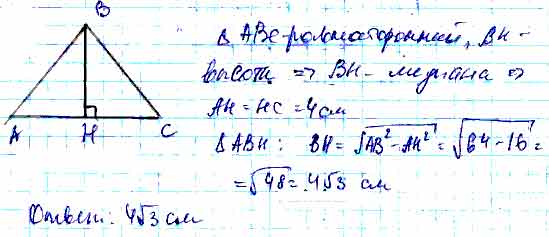 B
A H C
Δ ABC - равносторонний, BH -
высота => BH - медиана =>
AH = HC = 4 см
Δ ABH: BH = √AB² - AH² = √64 - 16 =
= √48 = 4√3 см
Ответ: 4√3 см